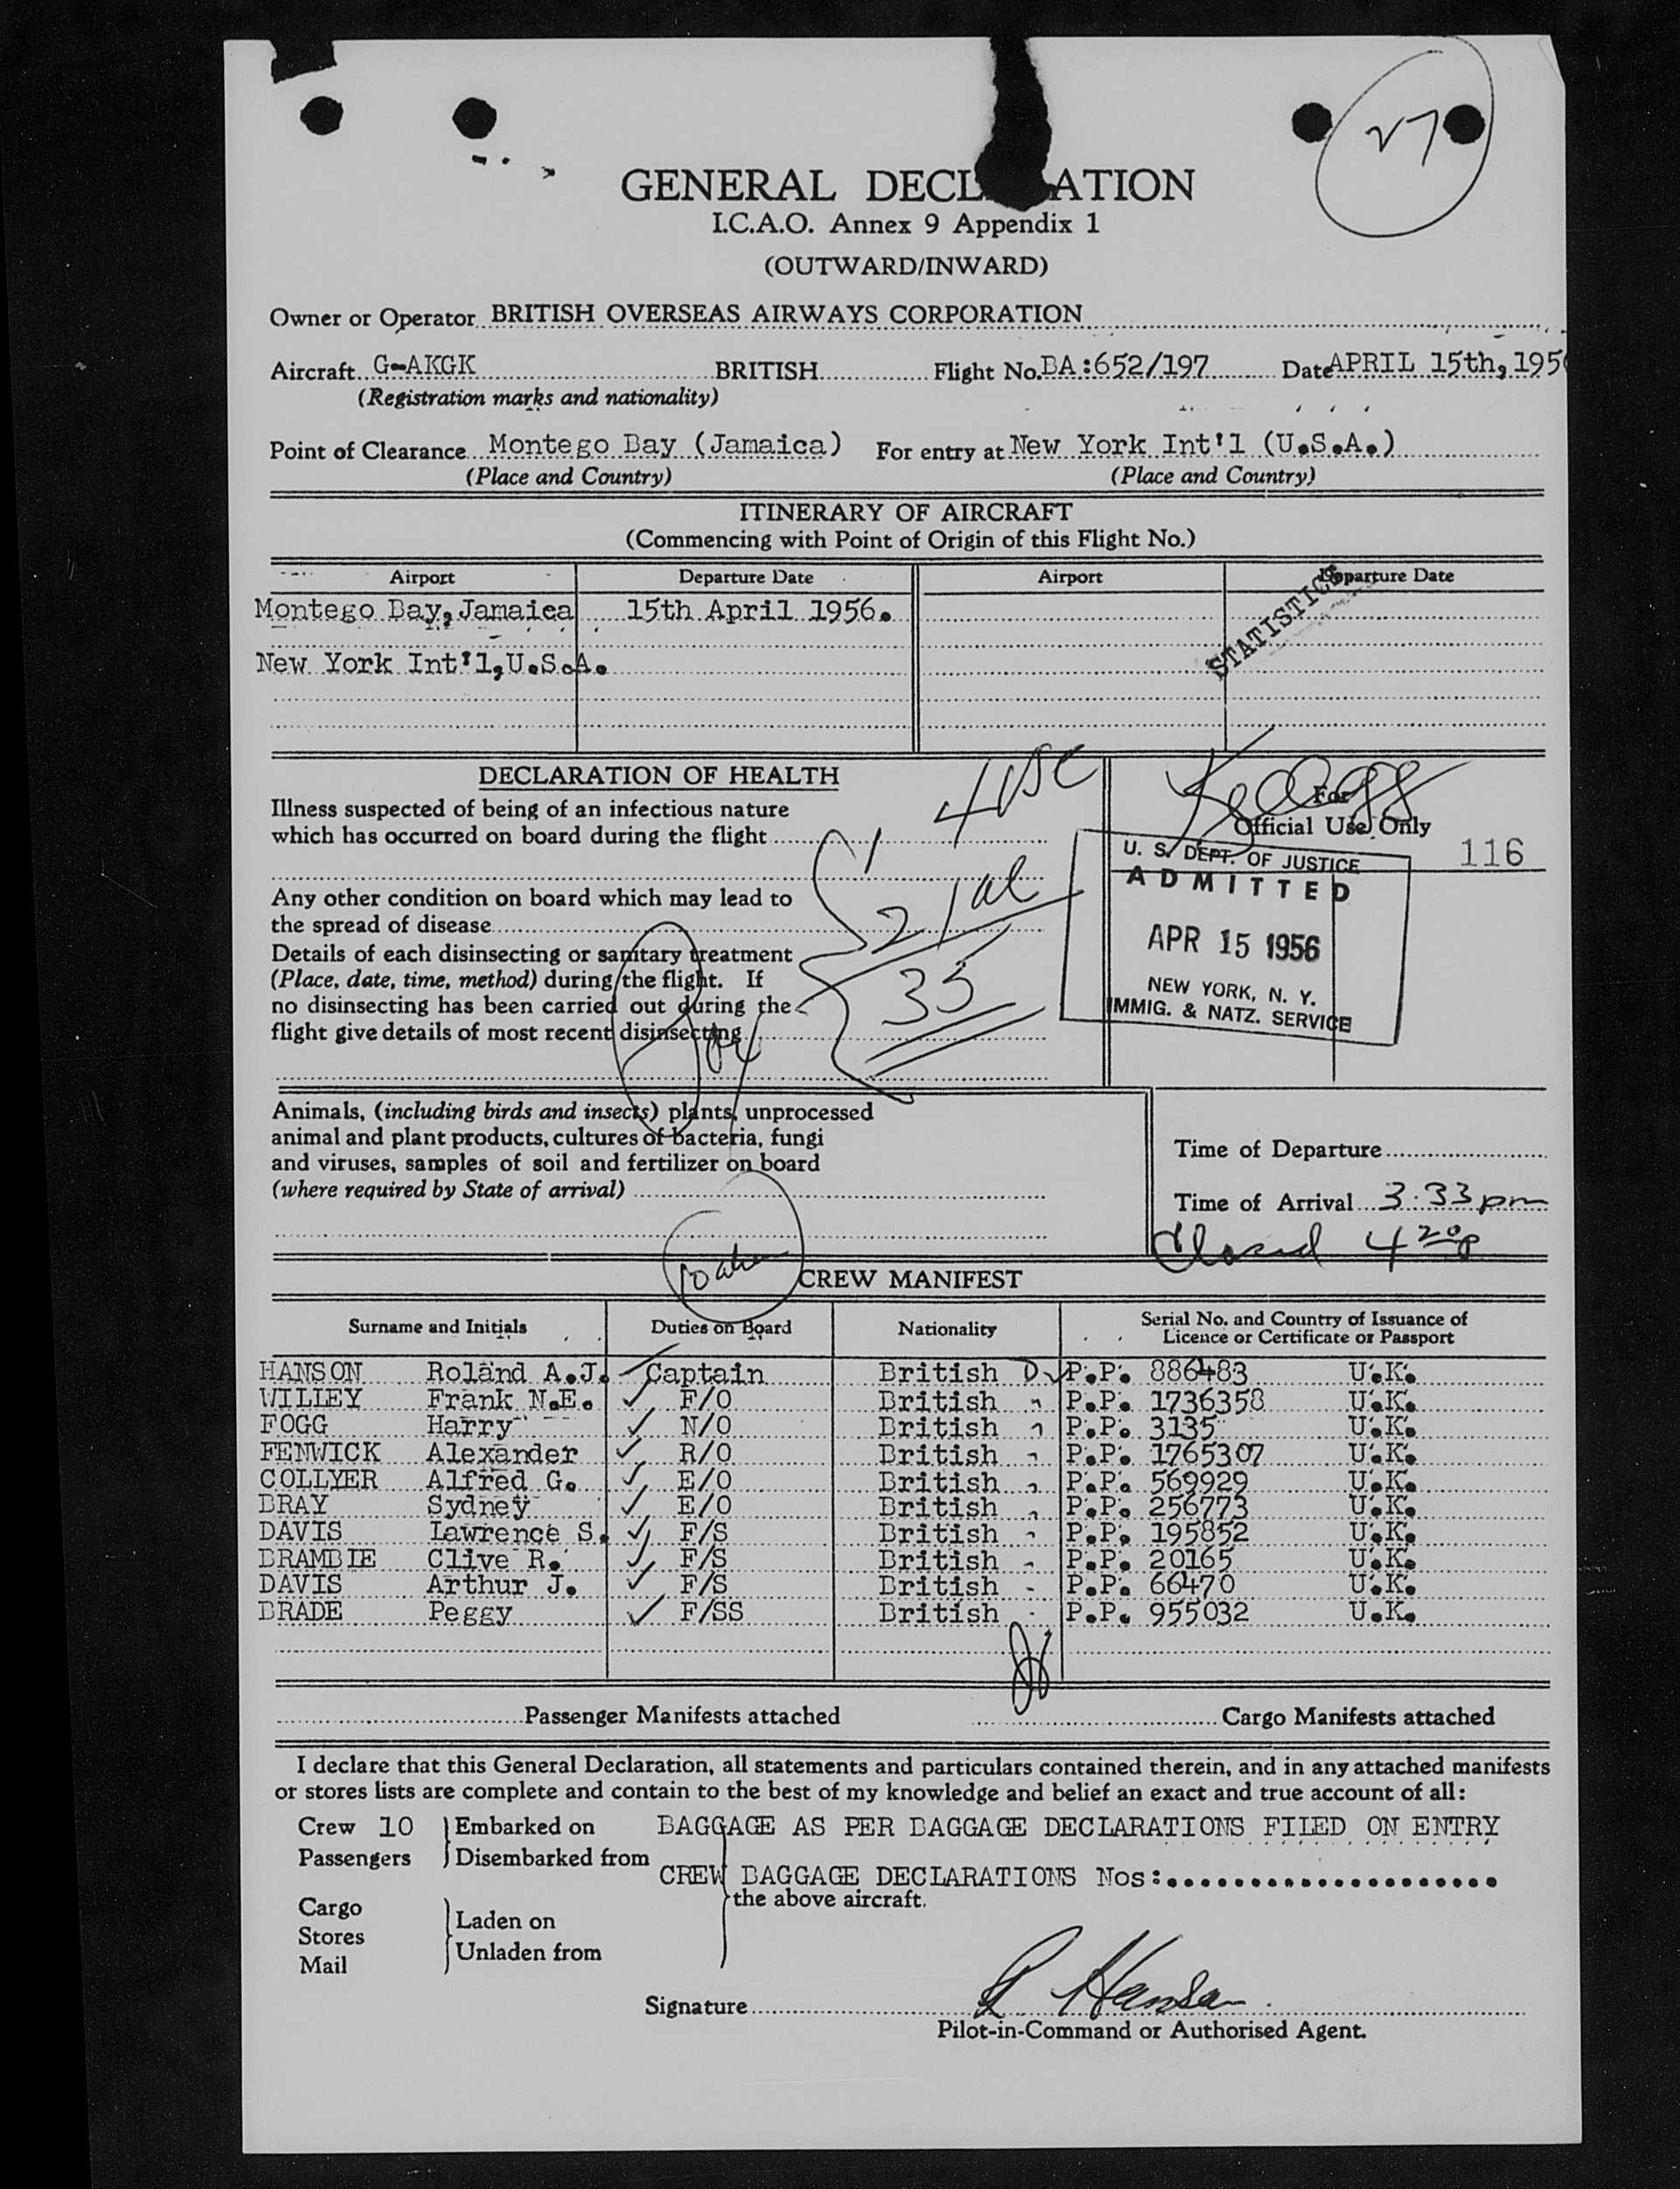 27
GENERAL DECL ATION
I.C.A.O. Annex 9 Appendix 1
(OUTWARD/INWARD)
Owner or Operator BRITISH OVERSEAS AIRWAYS CORPORATION
Aircraft G-AKGK BRITISH Flight No. BA:652/197 Date APRIL 15th, 1956
(Registration marks and nationality)
Point of Clearance Montego Bay (Jamaica) For entry at New York Int'l (U.S.A.)
(Place and Country) (Place and Country)
ITINERARY OF AIRCRAFT
(Commencing with Point of Origin of this Flight No.)
Airport Departure Date Airport Departure Date
Montego Bay, Jamaica 15th April 1956.
STATISTICS
New York Int'l, U.S.A.
DECLARATION OF HEALTH
For
Official Use Only
116
Illness suspected of being of an infectious nature
which has occurred on board during the flight
Any other condition on board which may lead to
the spread of disease
Details of each disinsecting or sanitary treatment
(Place, date, time, method) during the flight. If
no disinsecting has been carried out during the
flight give details of most recent disinsecting
21
33
U. S. DEPT. OF JUSTICE
ADMITTED
APR 15 1956
NEW YORK, N. Y.
IMMIG. & NATZ. SERVICE
Animals, (including birds and insects) plants, unprocessed
animal and plant products, cultures of bacteria, fungi
and viruses, samples of soil and fertilizer on board
(where required by State of arrival)
Time of Departure
Time of Arrival 3.33 pm
Closed 4 20p
CREW MANIFEST
Surname and Initials Duties on Board Nationality Serial No. and Country of Issuance of
Licence or Certificate or Passport
HANSON Roland A.J. Captain British D P.P. 886483 U.K.
WILLEY Frank N.E. F/O British " P.P. 1736358 U.K.
FOGG Harry N/O British " P.P. 3135 U.K.
FENWICK Alexander R/O British " P.P. 1765307 U.K.
COLLYER Alfred G. E/O British " P.P. 569929 U.K.
BRAY Sydney E/O British " P.P. 256773 U.K.
DAVIS Lawrence S. F/S British " P.P. 195852 U.K.
BRAMBLE Clive R. F/S British " P.P. 20165 U.K.
DAVIS Arthur J. F/S British " P.P. 66470 U.K.
BRADE Peggy F/SS British " P.P. 955032 U.K.
Passenger Manifests attached Cargo Manifests attached
I declare that this General Declaration, all statements and particulars contained therein, and in any attached manifests
or stores lists are complete and contain to the best of my knowledge and belief an exact and true account of all:
Crew 10 Embarked on BAGGAGE AS PER BAGGAGE DECLARATIONS FILED ON ENTRY
Passengers Disembarked from
CREW BAGGAGE DECLARATIONS Nos:....................
the above aircraft.
Cargo
Stores
Mail
Laden on
Unladen from
Signature R Hanson
Pilot-in-Command or Authorised Agent.